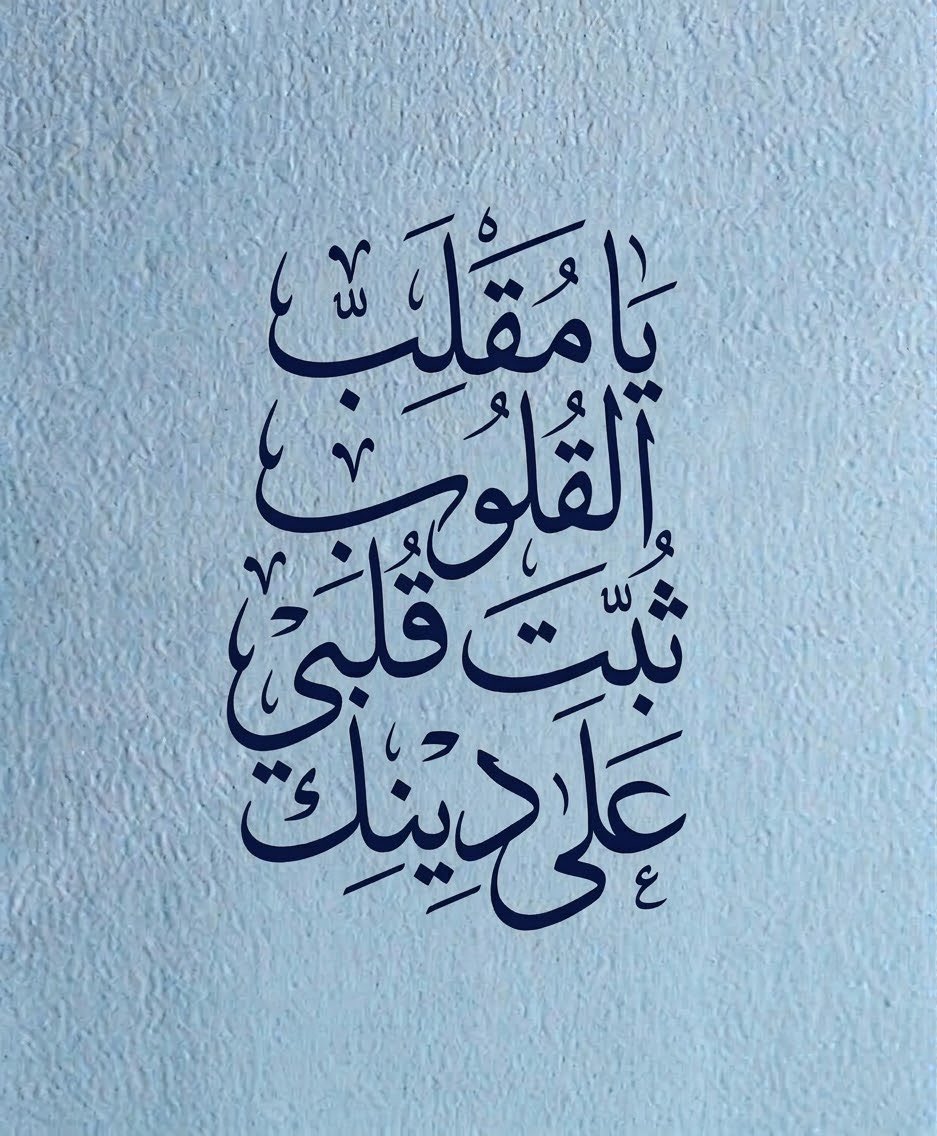 يَا مُقَلِبّ
القُلُوب
ثُبِّتَ قُلبَيْ
عَلىٰ دِيْنِك